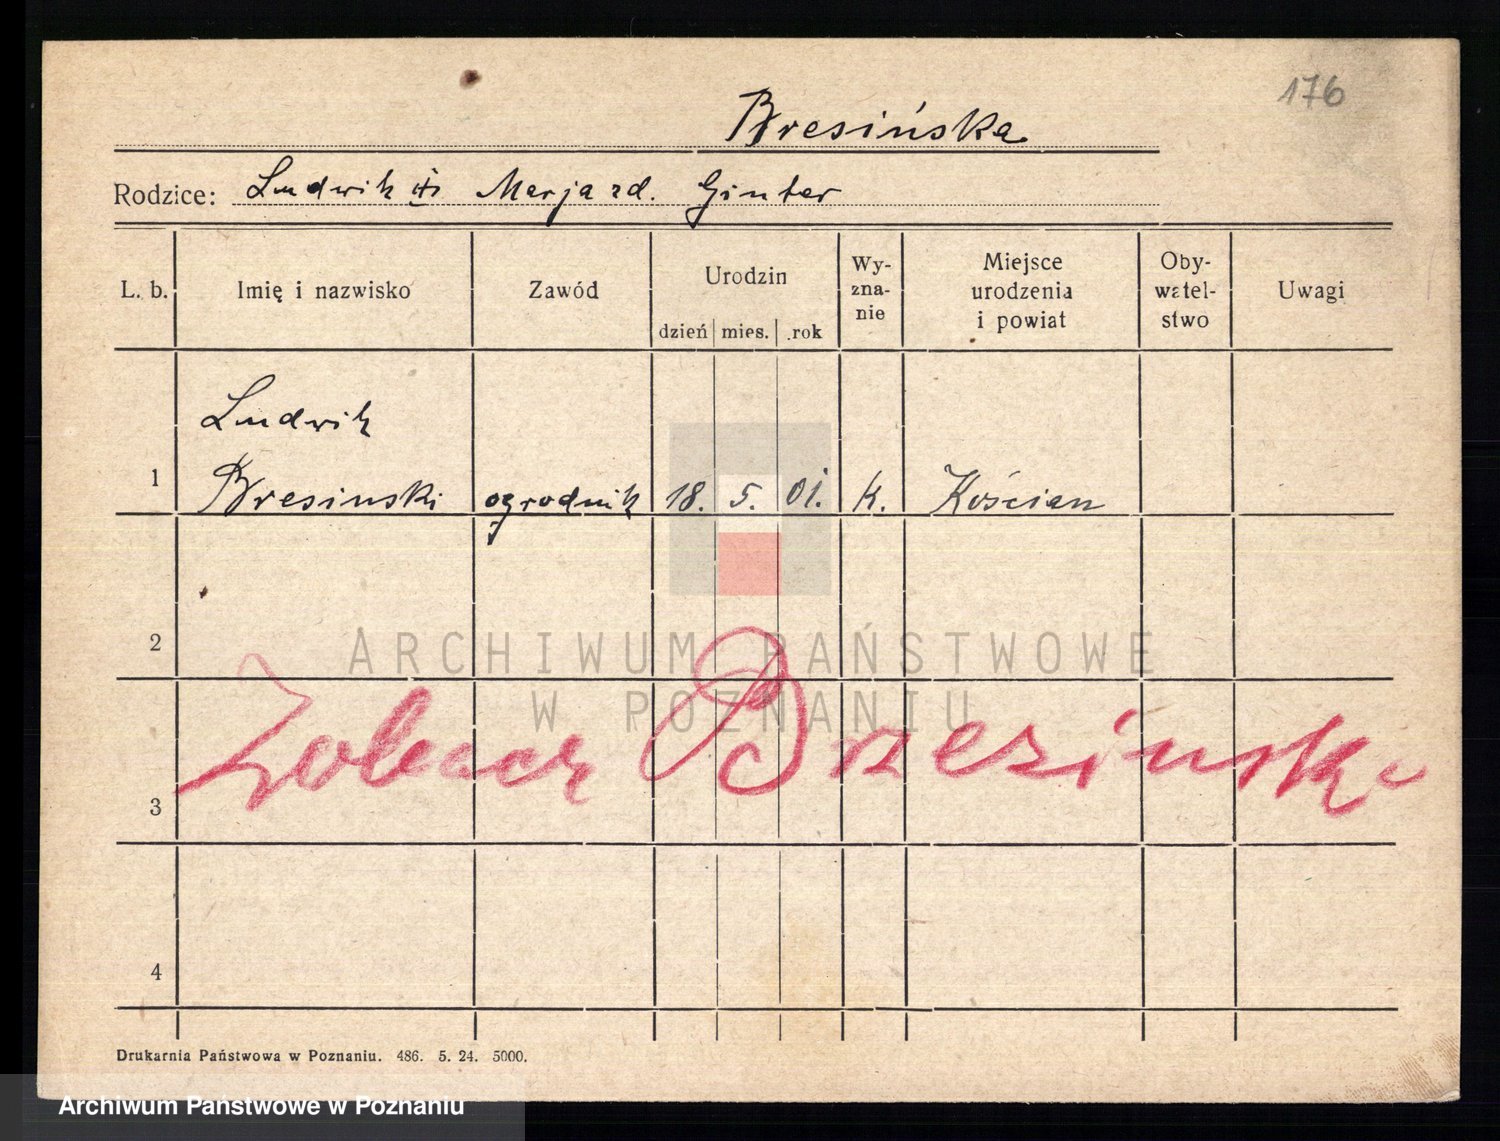 176
Bresińska
Rodzice: Ludwik i Marja zd. Ginter
L. b. Imię i nazwisko Zawód Urodzin dzień mies. rok Wy-zna-nie Miejsce urodzenia i powiat Oby-watel-stwo Uwagi
Ludwik
1 Bresinski ogrodnik 18. 5. 01. K. Kościan
2
ARCHIWUM PAŃSTWOWE
W POZNANIU
Zobacz Brzezinski
3
4
Drukarnia Państwowa w Poznaniu. 486. 5. 24. 5000.
Archiwum Państwowe w Poznaniu